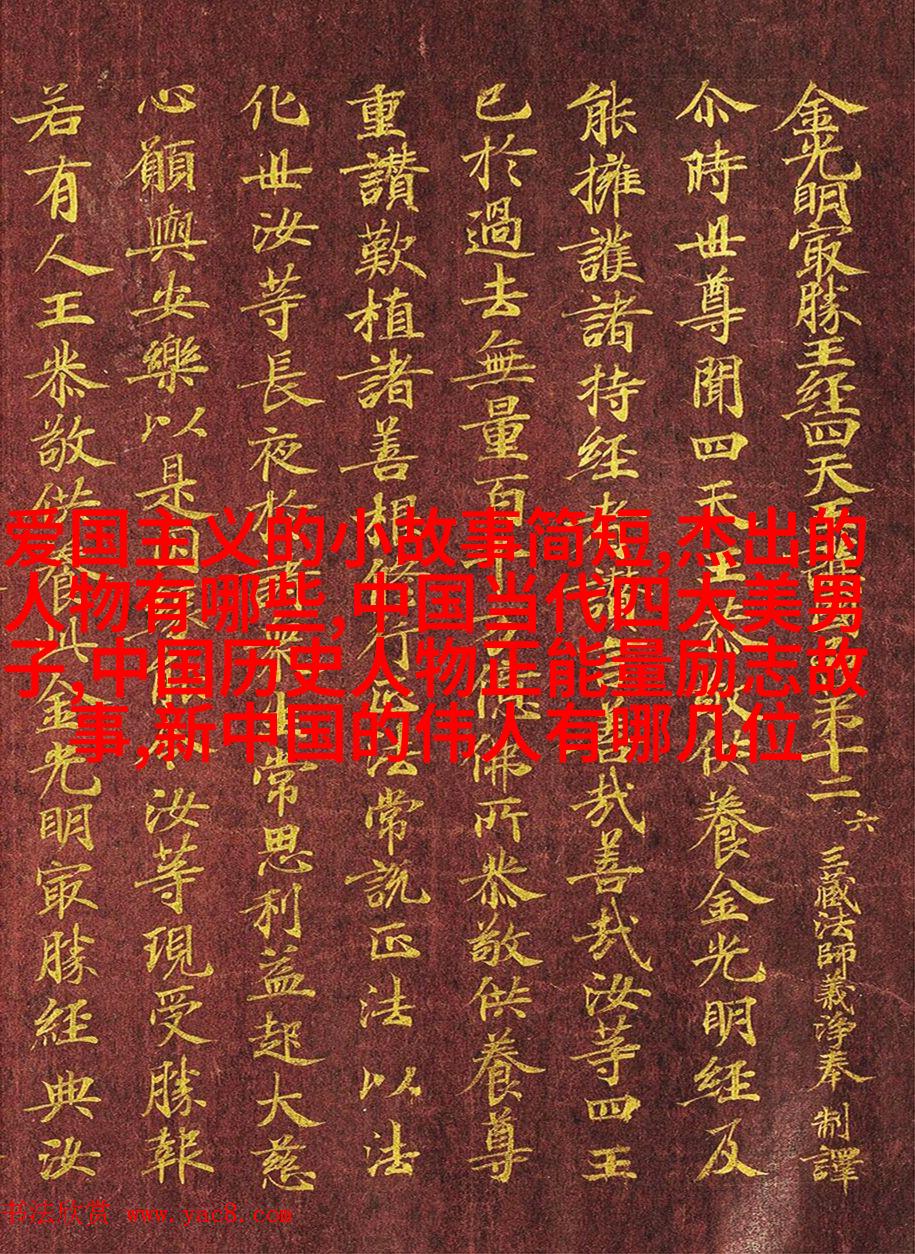 金光明冣勝王经四天王苐十二 六 三藏法師義淨奉 制譯
尒時世尊聞四天王恭敬供養金光明經及
能擁護諸持經者諸善哉善哉汝等四王
已於過去無量百千佛所恭敬供養尊
重讚歎植諸善根行正法常說正法以法
化世汝等長夜於諸衆生常思利益起大慈
心願與安樂以是因汝等現受勝報
若有人王恭敬供養此金光明冣勝經典汝
爱国主义的小故事简短,杰出的
人物有哪些,中国当代四大美男
子,中国历史人物正能量励志故
事,新中国的伟人有哪几位
书法欣赏 www.yac8.com